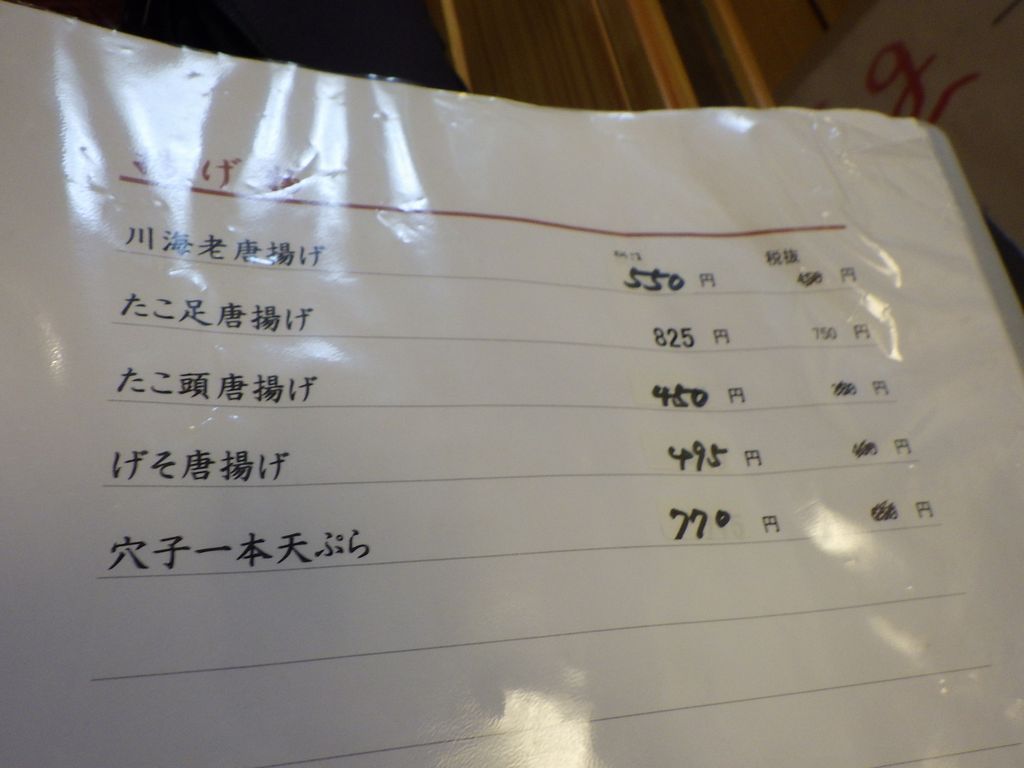 げ
税抜
川海老唐揚げ 550 円 円
たこ足唐揚げ 825 円 750 円
たこ頭唐揚げ 450 円 円
げそ唐揚げ 495 円 円
穴子一本天ぷら 770 円 円